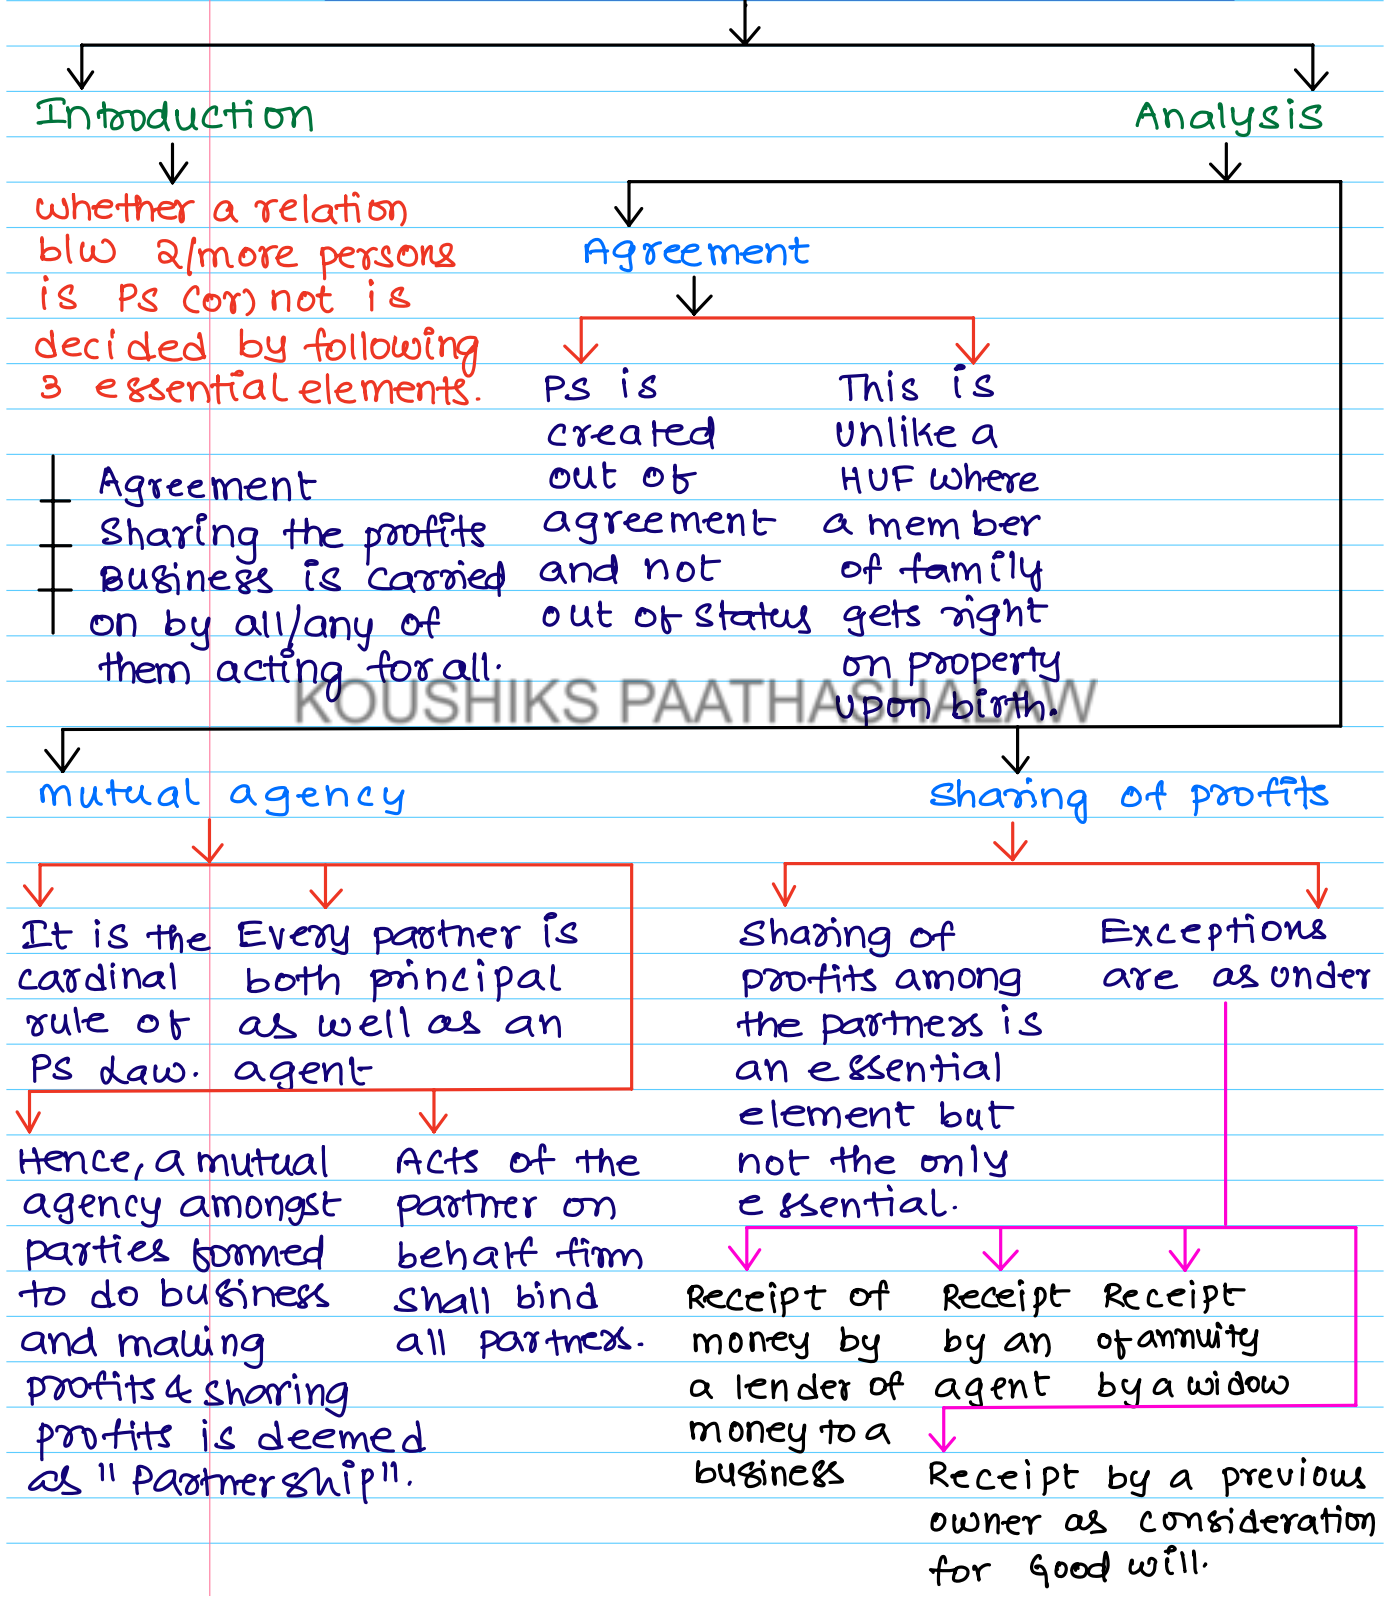 Introduction
Analysis
whether a relation
b/w 2/more persons
is PS (or) not is
decided by following
3 essential elements.
Agreement
Sharing the profits
Business is carried
on by all/any of
them acting for all.
Agreement
PS is
created
out of
agreement
and not
out of status
This is
unlike a
HUF where
a member
of family
gets right
on property
upon birth.
KOUSHIKS PAATHASHALAW
mutual agency
It is the
cardinal
rule of
PS Law.
Every partner is
both principal
as well as an
agent
Hence, a mutual
agency amongst
parties formed
to do business
and making
profits & sharing
profits is deemed
as "Partnership".
Acts of the
partner on
behalf firm
shall bind
all partners.
Sharing of profits
Sharing of
profits among
the partners is
an essential
element but
not the only
essential.
Exceptions
are as under
Receipt of
money by
a lender of
money to a
business
Receipt
by an
agent
Receipt
of annuity
by a widow
Receipt by a previous
owner as consideration
for Good will.